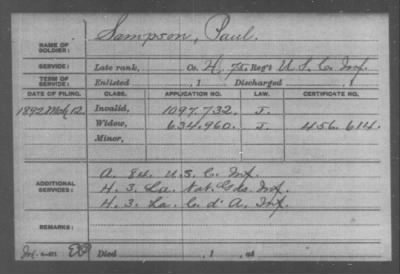 NAME OF SOLDIER: Sampson, Paul.
SERVICE: Late rank, Co. H, 75 Reg't U.S.C. Inf.
TERM OF SERVICE: Enlisted , 1 Discharged , 1
DATE OF FILING. CLASS. APPLICATION NO. LAW. CERTIFICATE NO.
1892 Mch 12 Invalid, 1097.732. J.
Widow, 634.960. J. 456.614.
Minor,
ADDITIONAL SERVICES: A. 84. U.S.C. Inf.
H. 3. La. Nat. Gds. Inf.
H. 3. La. C. d' A. Inf.
REMARKS:
Died , 1 , at